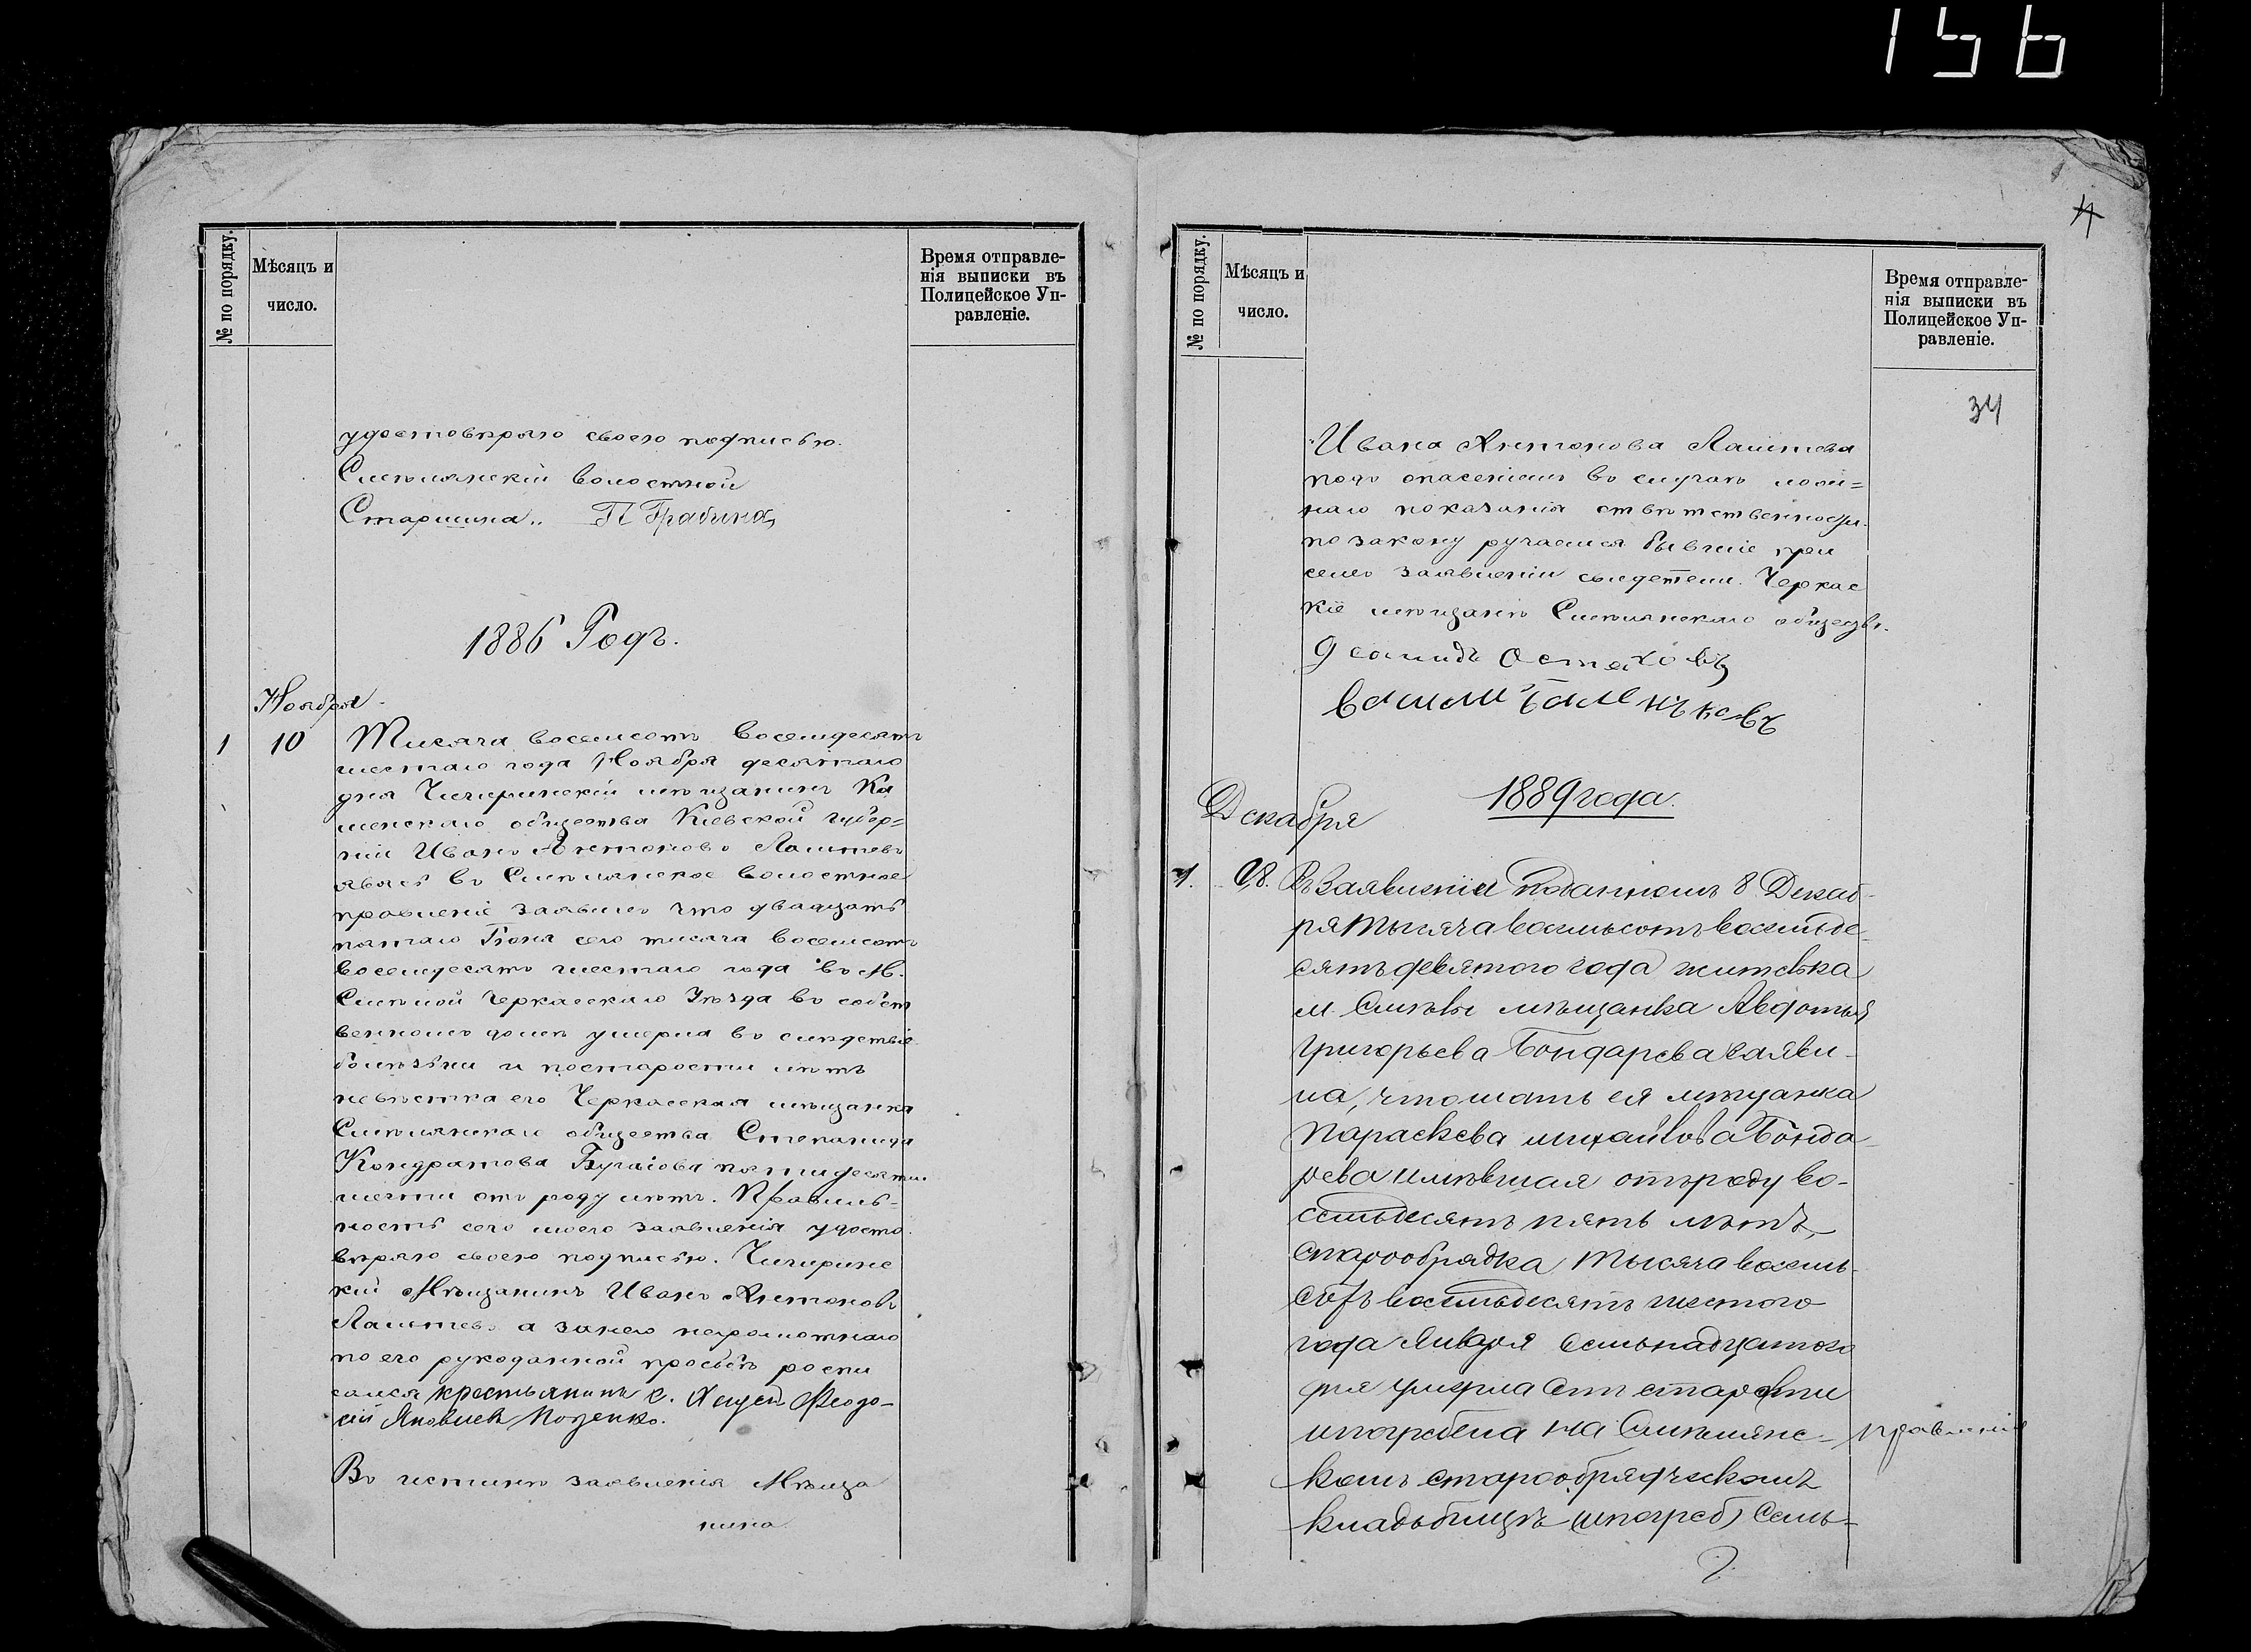 156
№ по порядку.
Мѣсяцъ и
число.
Время отправле-
нія выписки въ
Полицейское Уп-
равленіе.
удостовѣряю своею подписью.
Смѣлянскій волостной
Старшина„ П Грабина
1886 Годъ.
Ноября
1 10 Тисяча восемсотъ восемдесятъ
шестаго года Ноября десятаго
дня Чигиринскій мѣщанинъ Ка
менскаго общества Кіевской губер=
ніи Иванъ Антоновъ Лаптевъ
явясь въ Смѣлянское волостное
правленіе заявилъ что двадцать
пятаго Іюня сего тисяча восемсотъ
восемдесятъ шестаго года въ М.
Смѣлой Черкасскаго Уѣзда въ собст
венномъ домѣ умерла въ слѣдствіе
болѣзни и постарости лѣтъ
невѣстка его Черкасская мѣщанка
Смѣлянскаго общества Степанида
Кондратова пятидесяти
шести отъ роду лѣтъ. Правиль=
ность сего моего заявленія удосто
вѣряю своею подписью. Чигиринс
кій Мѣщанинъ Иванъ Антоновъ
Лаптевъ а занего неграмотнаго
по его рукоданной просьбѣ роспи
сался крестьянинъ с. Феодо-
сій Яковлевъ
Въ истинѣ заявленія Мѣща
нина
№ по порядку.
Мѣсяцъ и
число.
Время отправле-
нія выписки въ
Полицейское Уп-
равленіе.
34
Ивана Антонова Лаптева
подъ опасеніемъ въ случаѣ лож=
наго показанія отвѣтственности
по закону ручаемся бывшіе при
семъ заявленіи свидетели. Черкас
кіе мѣщанѣ Смѣлянскаго обществ.
Остаховъ
1889 года.
Декабря
1. 18. Въ заявленіи поданномъ 8 Декаб-
ря тысяча восемьсотъ восемьде-
сятъ девятого года жителька
м. Смѣлы мѣщанка Авдотья
Григорьева Бондарева заяви-
ла, что мать ея мѣщанка
Параскева Михайлова Бонда-
рева имѣвшая отъ роду во-
семьдесятъ пять лѣтъ,
старообрядка тысяча восемь-
сотъ восемьдесятъ шестого
года Января семьнадцатого
дня умерла отъ старости
и погребена на Смѣлянс- правленіе
комъ старообрядческомъ
кладьбищѣ (и погреб) семь-